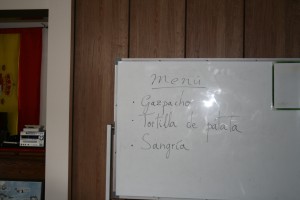 Menú
• Gazpacho
• Tortilla de patata
• Sangría